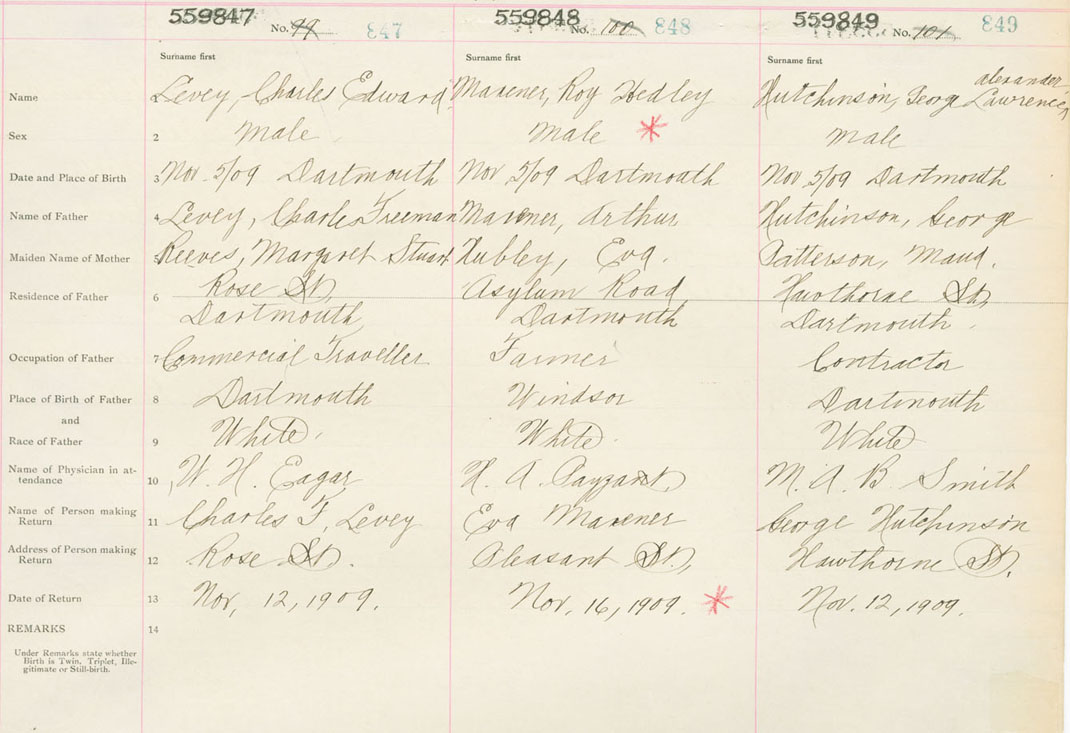 559847 559848 559849
No. 99 847 No. 100 848 No. 101 849
Surname first Surname first Surname first
Name 1 Levey, Charles Edward Maxener, Roy Hedley Hutchinson, George Alexander Lawrence
Sex 2 Male Male * Male
Date and Place of Birth 3 Nov. 5/09 Dartmouth Nov 5/09 Dartmouth Nov 5/09 Dartmouth
Name of Father 4 Levey, Charles Freeman Maxener, Arthur Hutchinson, George
Maiden Name of Mother 5 Reeves, Margaret Stuart Hubley, Eva. Patterson, Maud.
Residence of Father 6 Rose St, Asylum Road, Hawthorne St,
Dartmouth, Dartmouth Dartmouth,
Occupation of Father 7 Commercial Traveller Farmer Contractor
Place of Birth of Father 8 Dartmouth Windsor Dartmouth
and
Race of Father 9 White. White. White
Name of Physician in at-
tendance 10 W. H. Eagar H. A. Payzant, M. A. B. Smith
Name of Person making
Return 11 Charles F. Levey Eva Maxener George Hutchinson
Address of Person making
Return 12 Rose St. Pleasant St., Hawthorne St.
Date of Return 13 Nov, 12, 1909. Nov. 16, 1909. * Nov. 12, 1909.
REMARKS 14
Under Remarks state whether
Birth is Twin, Triplet, Ille-
gitimate or Still-birth.